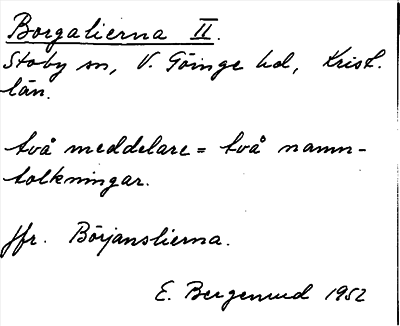 Borgalierna II.
Stoby sn, V. Göinge hd, Krist.
län.
två meddelare = två namn-
tolkningar.
Jfr. Börjanslierna.
E. Bergemud 1952